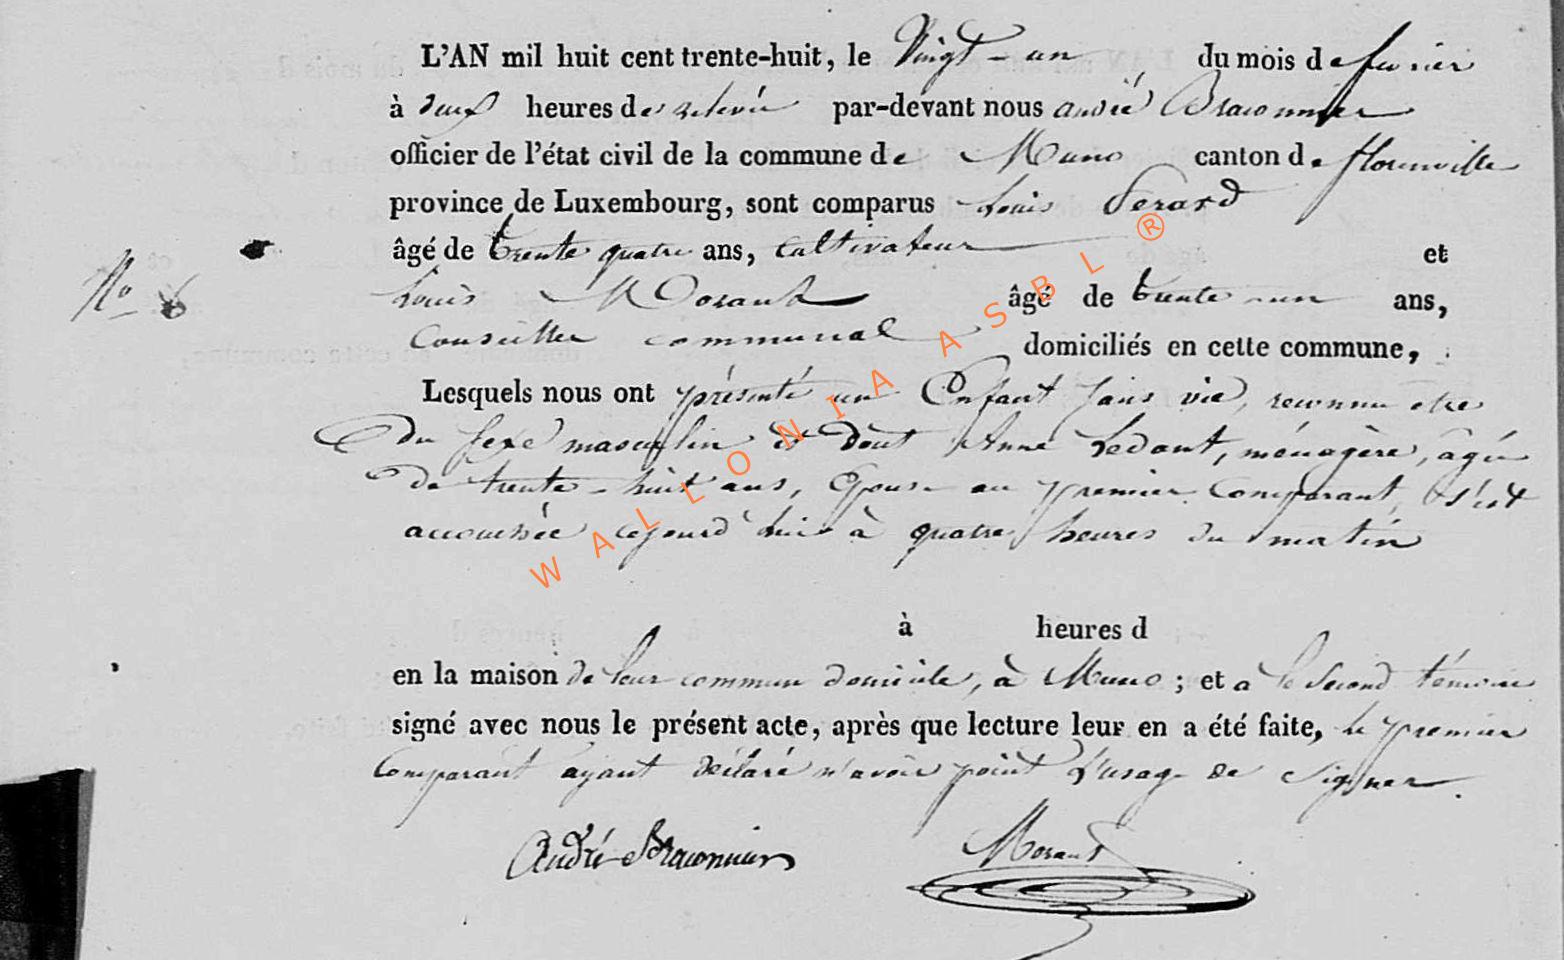 L'AN mil huit cent trente-huit, le Vingt-un du mois de fevrier
à deux heures de relevée par-devant nous andré Braconnier
officier de l'état civil de la commune de Muno canton de florenville
province de Luxembourg, sont comparus Louis Perard
âgé de trente quatre ans, cultivateur et
No 6
Louis Morand âgé de trente-un ans,
Conseiller communal domiciliés en cette commune,
Lesquels nous ont présenté un Enfant sans vie, reconnu etre
du sexe masculin et dont Anne Ledant, ménagère, âgée
de trente-huit ans, Epouse au premier Comparant, s'est
accouchée cejourd'hui à quatre heures du matin
à heures d
en la maison de leur commun domicile, à Muno; et a le second témoin
signé avec nous le présent acte, après que lecture leur en a été faite, le premier
Comparant ayant déclaré n'avoir point l'usage de signer.
André Braconnier Morand
WALLONIA ASBL ®